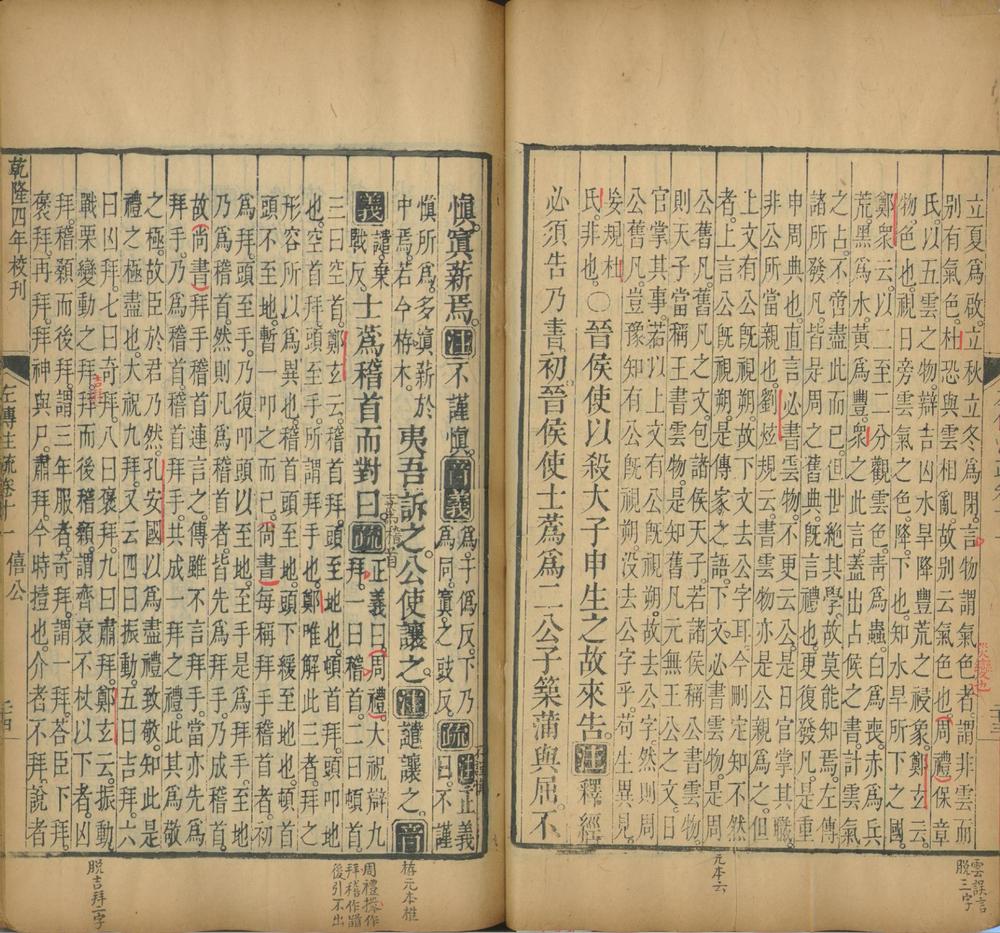 立夏爲啟立秋立冬爲閉言物謂氣色者謂非雲而
別有氣色杜恐與雲相亂故別云氣色也周禮保章
氏以五雲之物辯吉凶水旱降豐荒之祲象鄭玄云
物色也視日旁雲氣之色降下也知水旱所下之國
鄭衆云以二至二分觀雲色青爲蟲白爲喪赤爲兵
荒黑爲水黃爲豐衆之此言蓋出占候之書計雲氣
之占不啻盡此而已但世絶其學故莫能知焉左傳
諸所發凡皆是周之舊典既言禮也更復發凡是重
申周典也直言必書雲物不更云公是日官掌其職
非公所當親也劉炫規云書雲物亦是公親爲之但
上文有公既視朔故下文去公字耳今刪定知不然
者上言公既視朔是傳家之語下文必書雲物是周
公舊凡舊凡之文包諸侯天子若諸侯稱公書雲物
則天子當稱王書雲物是知舊凡元無王公之文日
官掌其事若以上文有公既視朔故去公字然則周
公舊凡豈豫知有公既視朔沒去公字乎苟生異見
妄規杜
氏非也○晉侯使以殺大子申生之故來告注釋經
必須告乃書初晉侯使士蔿爲二公子築蒲與屈不
慎寘薪焉注不謹慎音義爲于僞反下乃爲同寘之豉反疏注不謹慎正義曰不謹
慎所爲多寘薪於
中焉若今栫木夷吾訴之公使讓之注譴讓之音
義譴棄戰反士蔿稽首而對曰疏正義曰周禮大祝辯九拜一曰稽首二曰頓首
三曰空首鄭玄云稽首拜頭至地也頓首拜頭叩地
也空首拜頭至手所謂拜手也鄭唯解此三者拜之
形容所以爲異也稽首頭至地頭下緩至地也頓首
頭不至地暫一叩之而已尚書每稱拜手稽首者初
爲拜頭至手乃復叩頭以至地至手是爲拜手至地
乃爲稽首然則凡爲稽首者皆先爲拜手乃成稽首
故尚書拜手稽首連言之傳雖不言拜手當亦先爲
拜手乃爲稽首稽首拜手共成一拜之禮此其爲敬
之極故臣於君乃然孔安國以爲盡禮致敬知此是
禮之極盡也大祝九拜又云四曰振動五曰吉拜六
曰凶拜七曰奇拜八曰褒拜九曰肅拜鄭玄云振動
戰栗變動之拜拜而後稽顙謂齊衰不杖以下者凶
拜稽顙而後拜謂三年服者奇拜謂一拜荅臣下拜
褒拜再拜拜神與尸肅拜今時擡也介者不拜說者
乾隆四年校刊
左傳注疏卷十二
僖公
吉拜
雲誤言
脱三字
元本云
栫元本椎
周禮操作
後引不出
脱吉拜二字